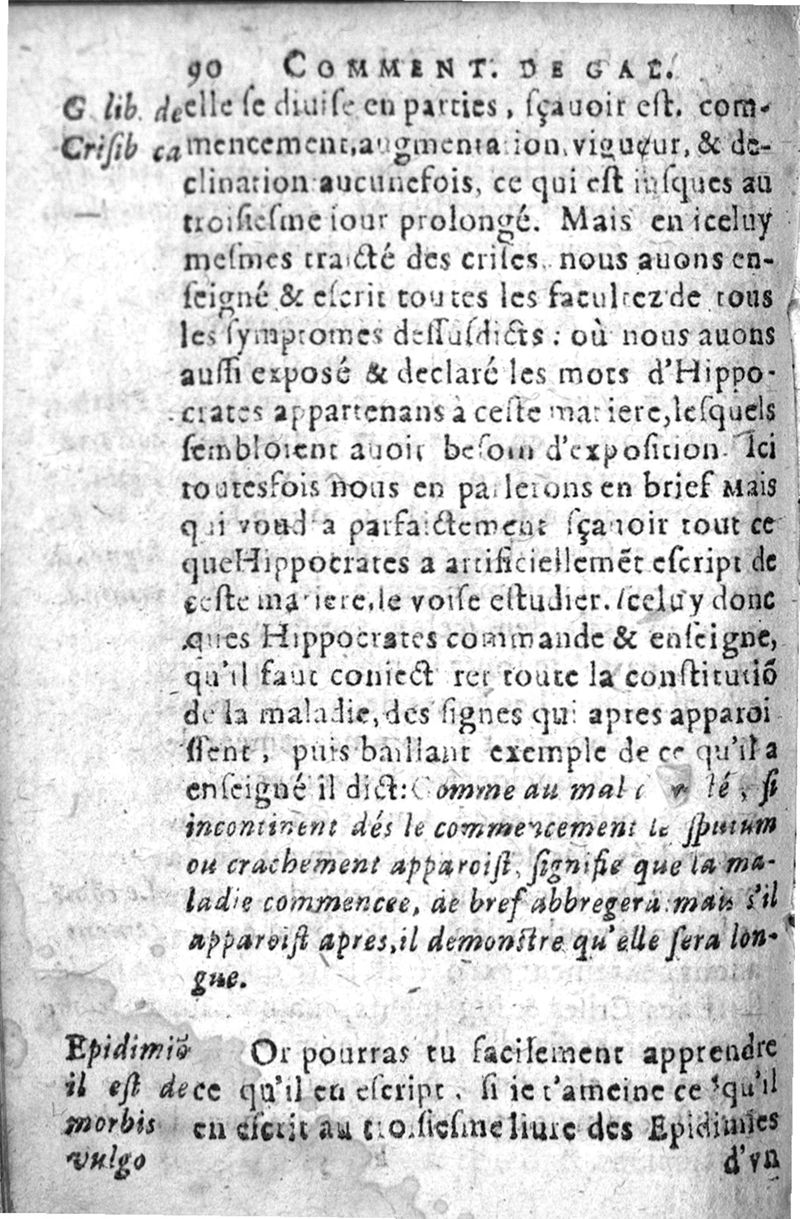 90 COMMENT. DE GAL.
G lib. de elle se diuise en parties, sçauoir est. com-
Crisib ca mencement, augmentation, vigueur, & de-
clination aucunefois, ce qui est iusques au
troisiesme iour prolongé. Mais en iceluy
mesmes traicté des crises, nous auons en-
seigné & escrit toutes les facultez de tous
les symptomes dessusdicts : où nous auons
aussi exposé & declaré les mots d'Hippo-
crates appartenans à ceste matiere, lesquels
sembloient auoir besoin d'exposition. Ici
toutesfois nous en parlerons en brief Mais
qui voudra parfaictement sçauoir tout ce
que Hippocrates a artificiellemẽt escript de
ceste matiere, le voise estudier. Iceluy donc
ques Hippocrates commande & enseigne,
qu'il faut coniecturer toute la constitutiõ
de la maladie, des signes qui apres apparoi
ssent, puis baillant exemple de ce qu'il a
enseigné il dict: Comme au mal de, si
incontinent dés le commencement le sputum
ou crachement apparoist, signifie que la ma-
ladie commencee, de bref abbregera: mais s'il
apparoist apres, il demonstre qu'elle sera lon-
gue.
Epidimiõ Or pourras tu facilement apprendre
il est de ce qu'il en escript, si ie t'ameine ce qu'il
morbis en escrit au troisiesme liure des Epidimies
vulgo d'vn